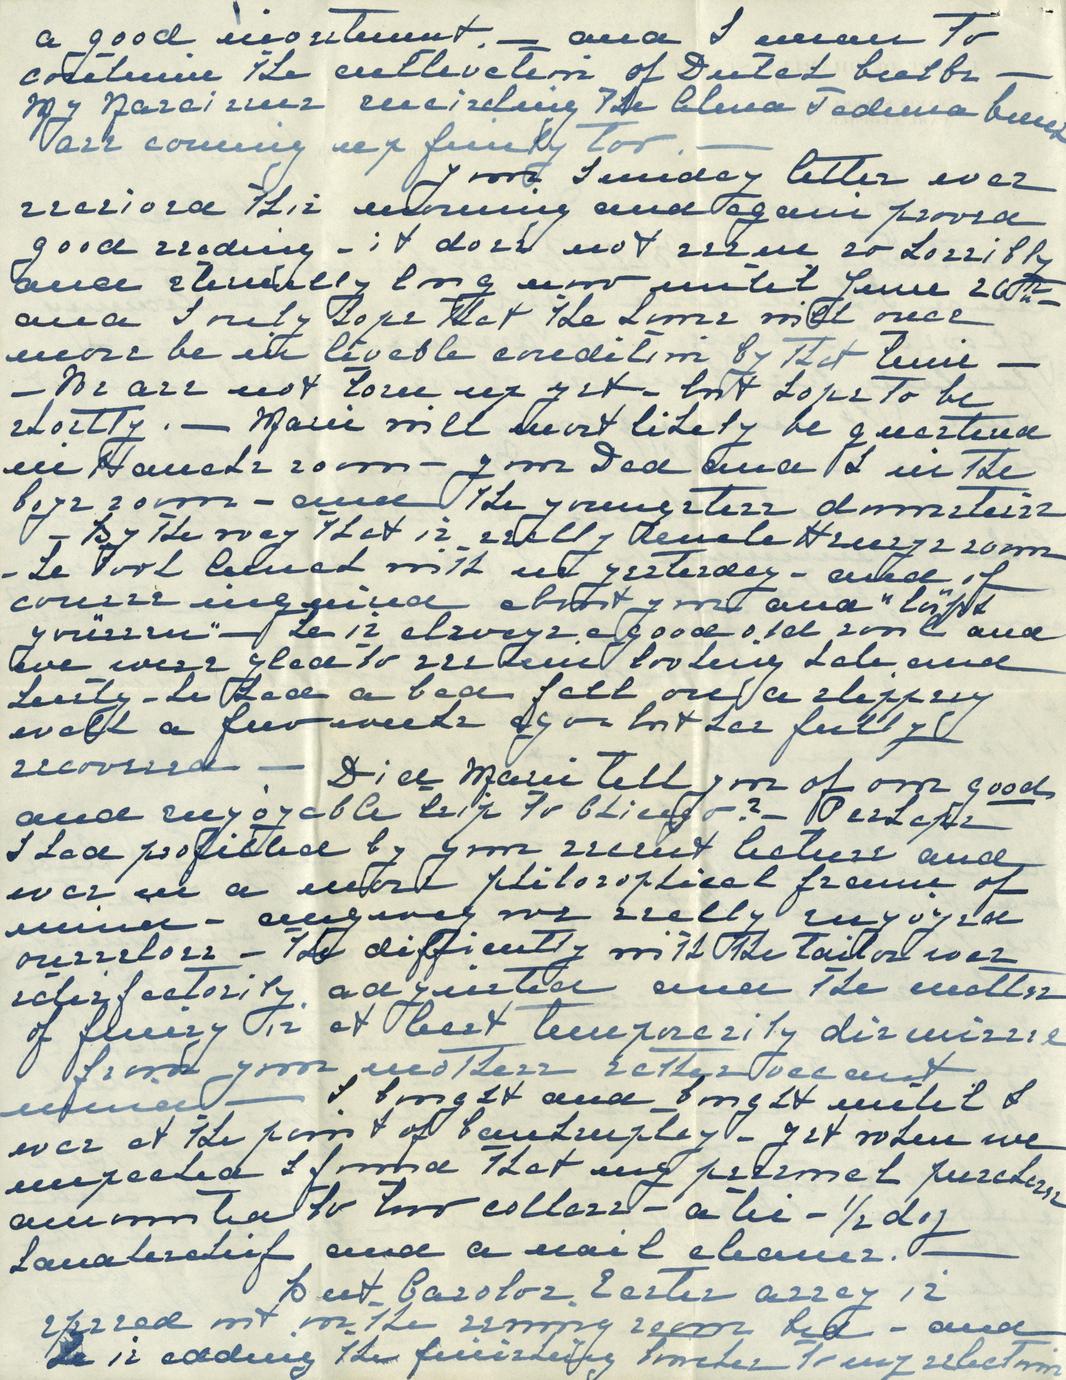 a good investment. — and I mean to
continue the cultivation of Dutch bulbs —
My Narcissus encircling the Alma Tadema bench
are coming up finely too. —
Your Sunday letter was
received this morning and again proved
good reading - it does not seem so horribly
and eternally long now until June 20th -
and I only hope that the house will once
more be in livable condition by that time —
- We are not torn up yet - but hope to be
shortly. — Marie will most likely be quartered
in Hanch's room - your Dad and I in the
boys room - and the youngsters downstairs
- By the way that is really Uncle Henry's room
- he took lunch with us yesterday - and of
course inquired about you and "
" - he is always a good old soul and
we were glad to see him looking hale and
husty - he had a bad fall on a slippery
walk a few weeks ago - but has fully
recovered — Did Marie tell you of our good
and enjoyable trip to Chicago? - Perhaps
I had profited by your recent lecture and
was in a more philosophical frame of
mind - anyway we really enjoyed
ourselves - the difficulty with the tailor was
satisfactorily adjusted and the matter
of finery is at least temporarily dismissed
from your mothers rather vacant
mind — I bought and bought until I
was at the point of bankruptcy - yet when we
unpacked I found that my personal purchases
amounted to two collars - a tie - 1/2 doz
handkerchief and a nail cleaner. —
But Carolos Easter array is
spread out on the sewing room bed - and
he is adding the finishing touches to my selection